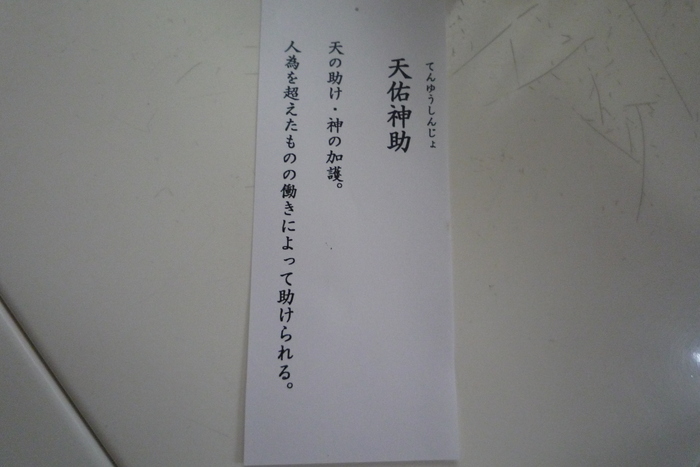 てんゆうしんじょ
天佑神助
天の助け・神の加護。
人為を超えたものの働きによって助けられる。